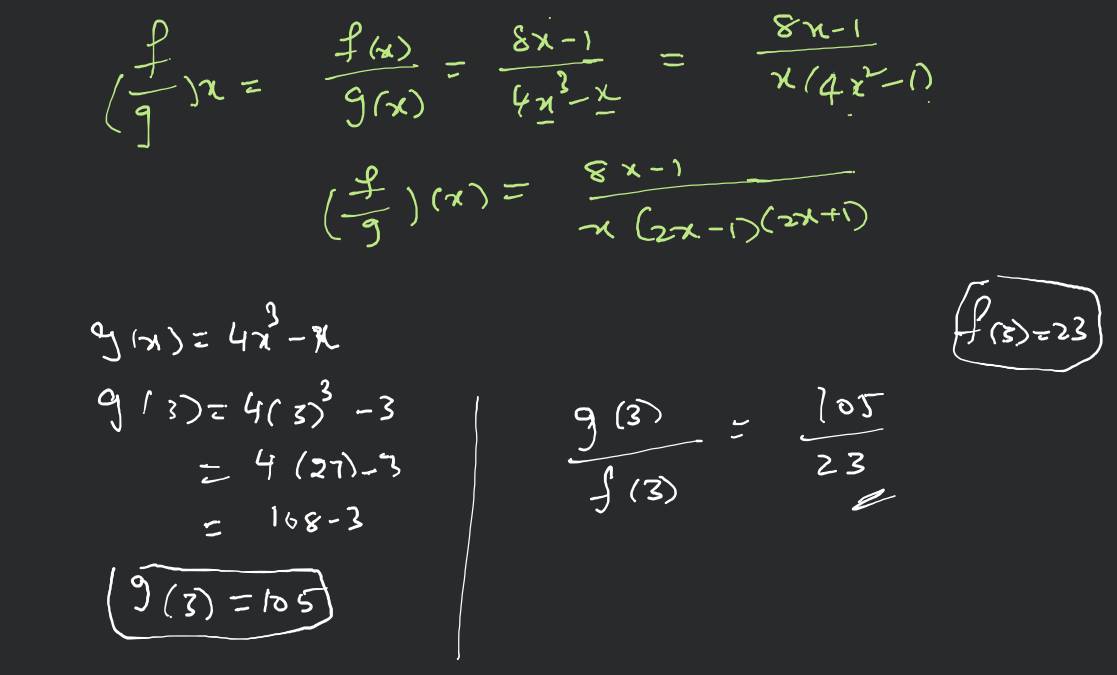 (f/g)x = f(x)/g(x) = 8x-1/4x³-x = 8x-1/x(4x²-1)
(f/g)(x) = 8x-1/x(2x-1)(2x+1)
f(3)=23
g(x) = 4x³-x
g(3) = 4(3)³-3
= 4(27)-3
= 108-3
g(3) = 105
g(3)/f(3) = 105/23